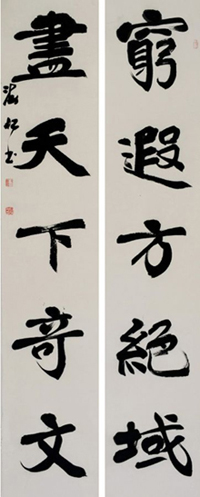 窮遐方絕域
盡天下奇文